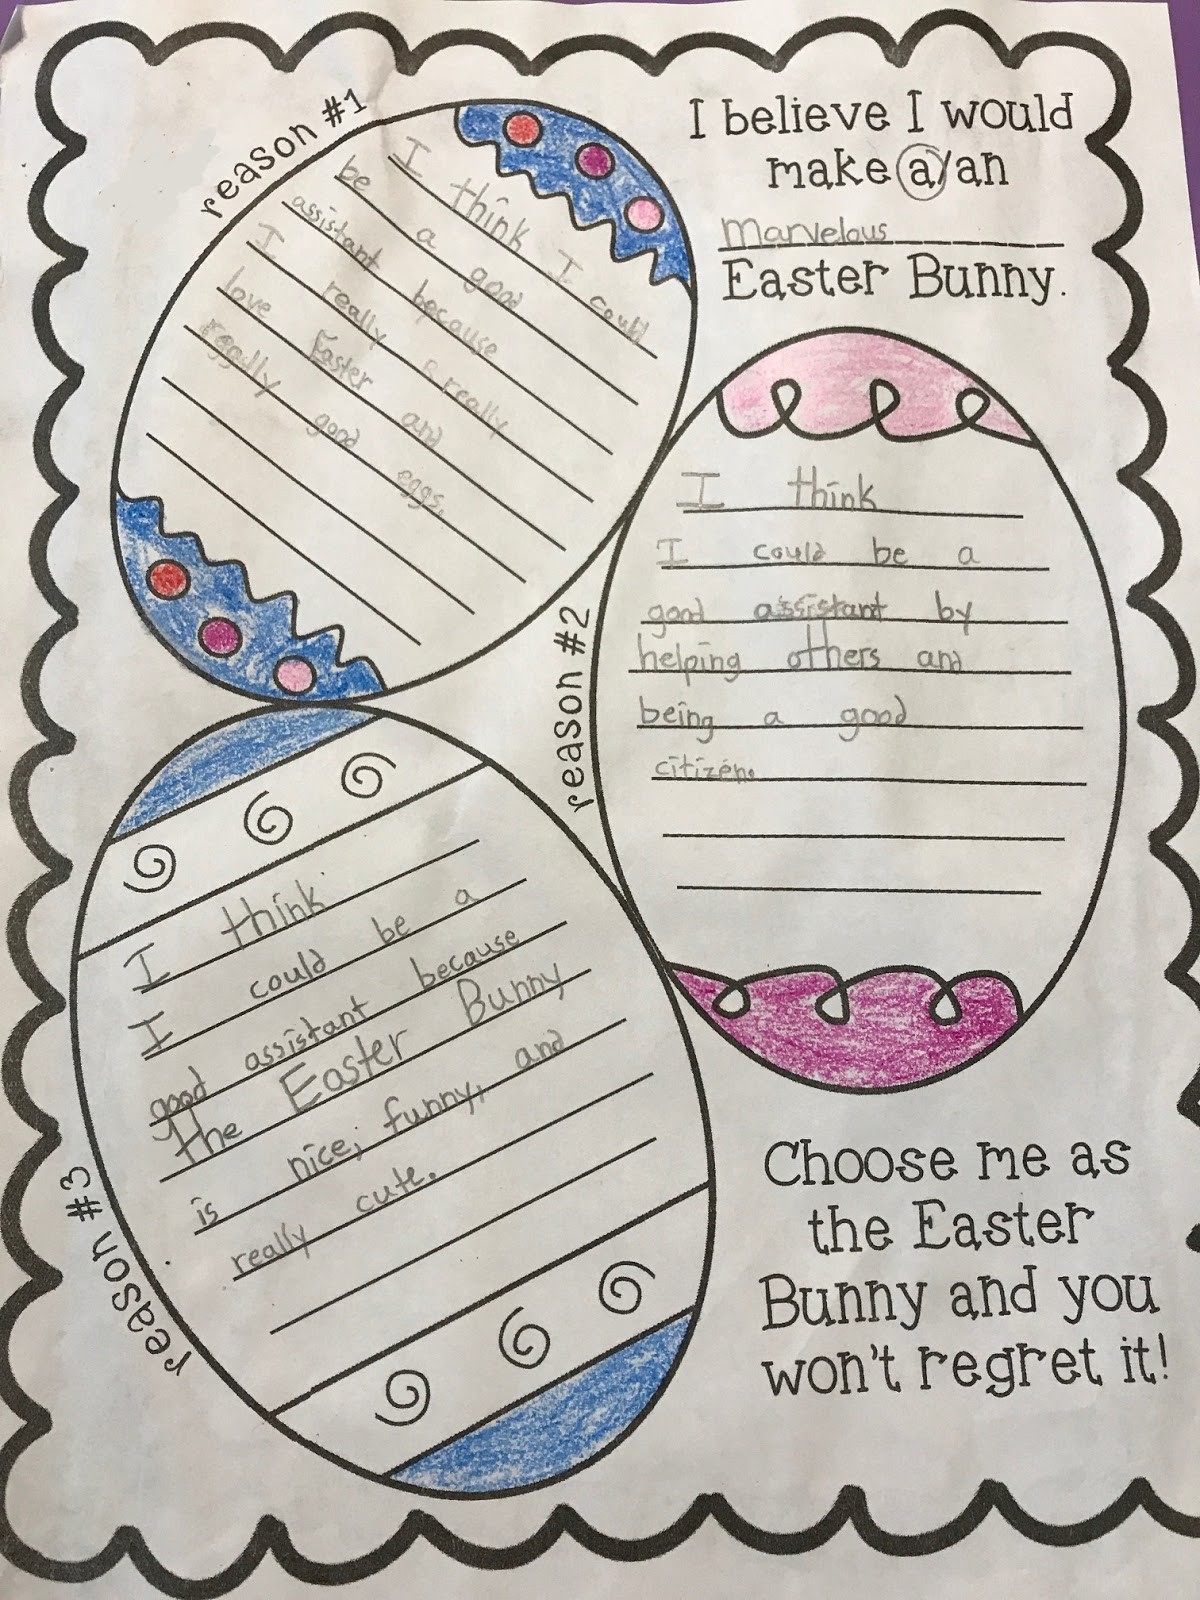 I believe I would
make a/an
Marvelous
Easter Bunny.
reason #1
I think I could
be a good
assistant because
I really & really
love Easter and
reqally good eggs.
reason #2
I think
I could be a
good assistant by
helping others and
being a good
citizen.
reason #3
I think
I could be a
good assistant because
the Easter Bunny
is nice, funny, and
really cute.
Choose me as
the Easter
Bunny and you
won't regret it!